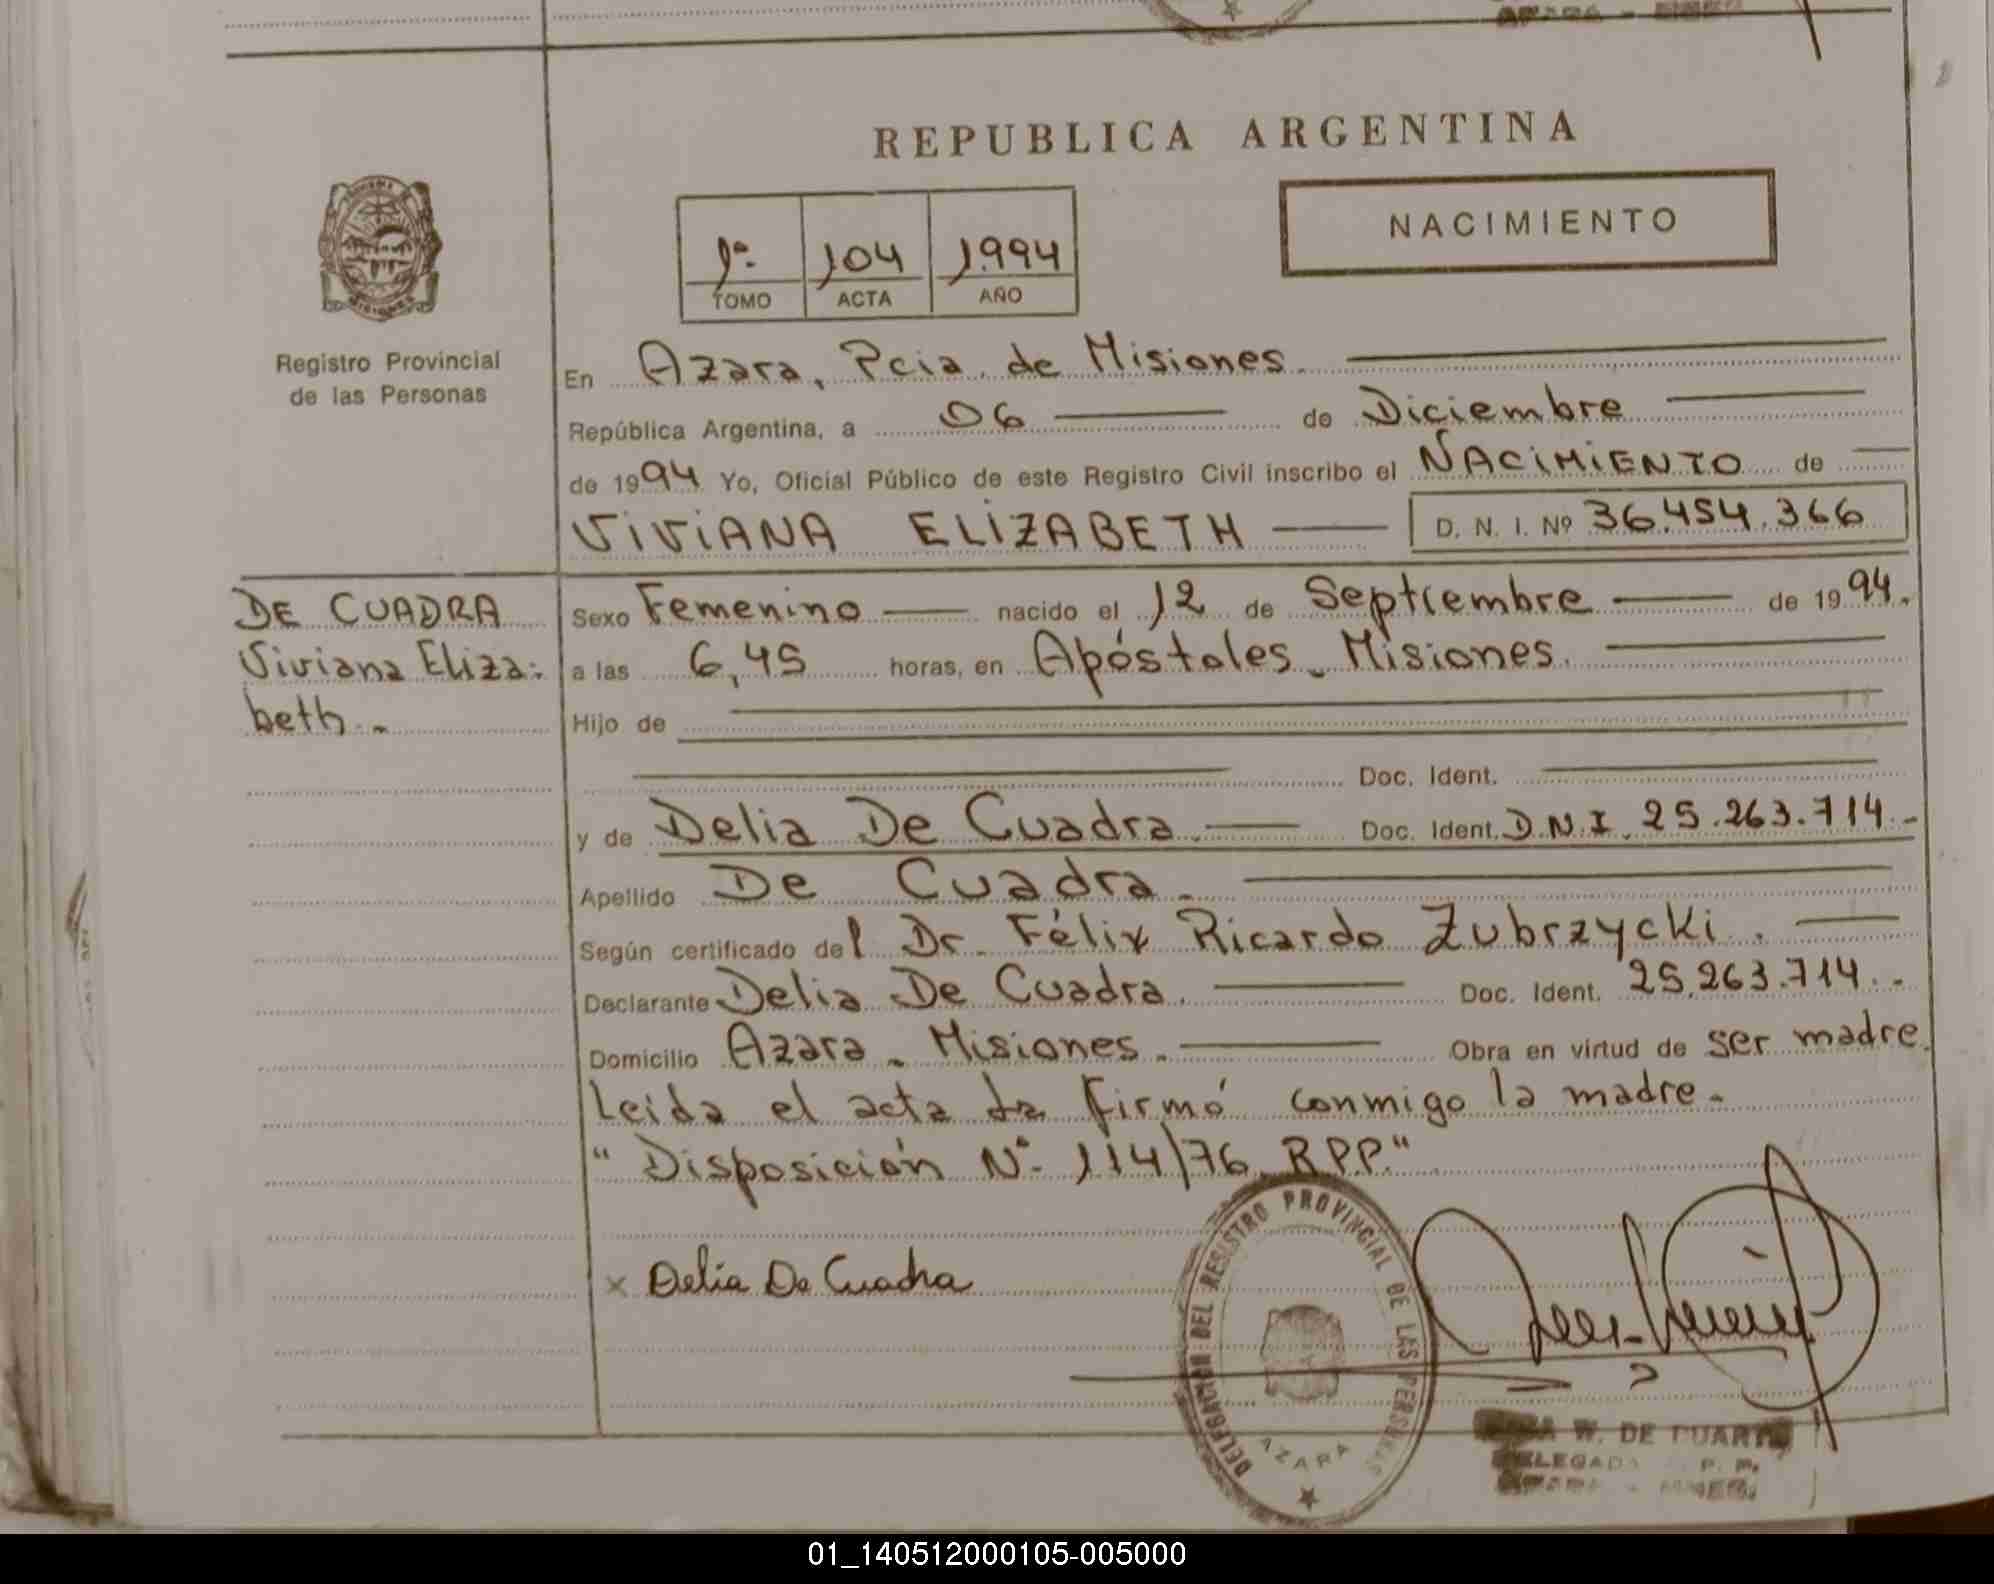 REPUBLICA ARGENTINA
NACIMIENTO
1ª 104 1994
TOMO ACTA AÑO
MISIONES
Registro Provincial
de las Personas
En Azara, Pcia. de Misiones.
República Argentina, a 06 de Diciembre
de 1994 Yo, Oficial Público de este Registro Civil inscribo el NACIMIENTO de
VIVIANA ELIZABETH D. N. I. Nº 36.454.366
DE CUADRA
Viviana Eliza-
beth.-
Sexo Femenino nacido el 12 de Septiembre de 1994.
a las 6,45 horas, en Apóstoles - Misiones.
Hijo de
Doc. Ident.
y de Delia De Cuadra. Doc. Ident. D.N.I. 25.263.714.-
Apellido De Cuadra.
Según certificado del Dr. Félix Ricardo Zubrzycki.
Declarante Delia De Cuadra. Doc. Ident. 25.263.714.-
Domicilio Azara - Misiones. Obra en virtud de ser madre.
Leida el acta la firmó conmigo la madre.
"Disposición Nº 114/76 R.P.P."
x Delia De Cuadra
DELEGACION DEL REGISTRO PROVINCIAL DE LAS PERSONAS
AZARA
W. DE DUARTE
DELEGADA P. P.
01_140512000105-005000